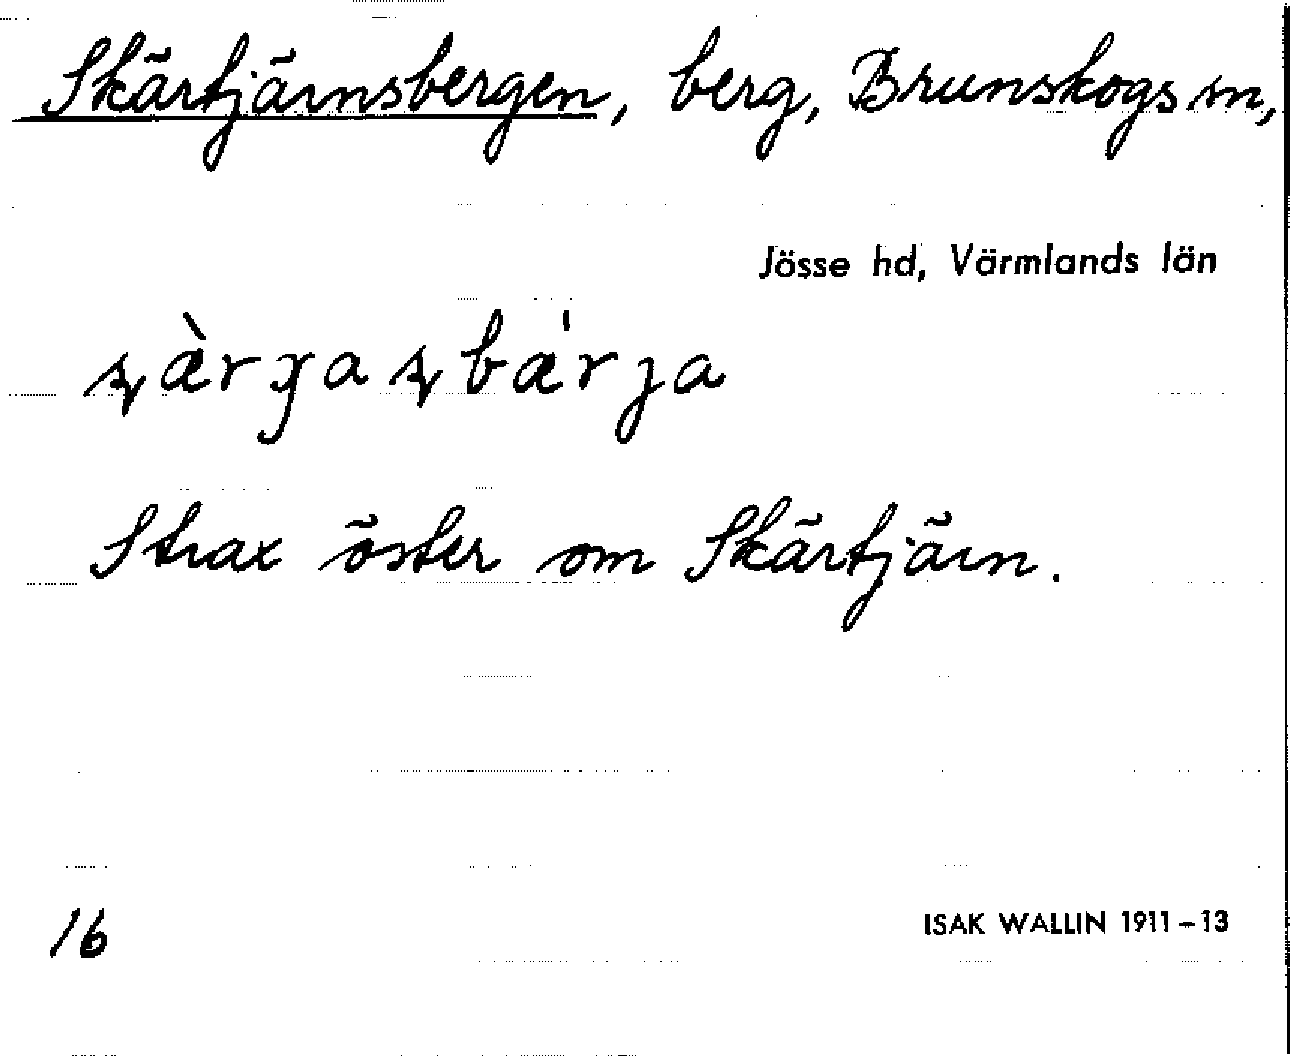 Skärtjärnsbergen, berg, Brunskogs sn,
Jösse hd, Värmlands län
Strax öster om Skärtjärn.
16
ISAK WALLIN 1911–13